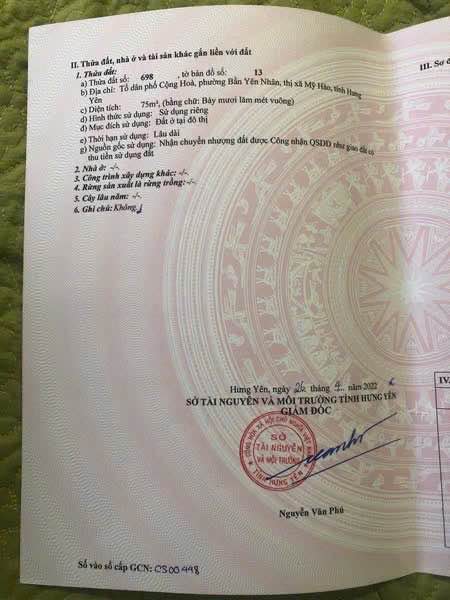 II. Thửa đất, nhà ở và tài sản khác gắn liền với đất
1. Thửa đất:
a) Thửa đất số: 698 , tờ bản đồ số: 13
b) Địa chỉ: Tổ dân phố Cộng Hoà, phường Bần Yên Nhân, thị xã Mỹ Hào, tỉnh Hưng
Yên
c) Diện tích: 75m², (bằng chữ: Bảy mươi lăm mét vuông)
d) Hình thức sử dụng: Sử dụng riêng
đ) Mục đích sử dụng: Đất ở tại đô thị
e) Thời hạn sử dụng: Lâu dài
g) Nguồn gốc sử dụng: Nhận chuyển nhượng đất được Công nhận QSDĐ như giao đất có
thu tiền sử dụng đất
2. Nhà ở: -/-
3. Công trình xây dựng khác: -/-
4. Rừng sản xuất là rừng trồng: -/-
5. Cây lâu năm: -/-
6. Ghi chú: Không
III. Sơ đ
Hưng Yên, ngày 26 tháng 4 năm 2022
SỞ TÀI NGUYÊN VÀ MÔI TRƯỜNG TỈNH HƯNG YÊN
GIÁM ĐỐC
CỘNG HÒA XÃ HỘI CHỦ NGHĨA VIỆT NAM
SỞ
TÀI NGUYÊN
VÀ MÔI TRƯỜNG
TỈNH HƯNG YÊN
Nguyễn Văn Phú
IV.
Số vào sổ cấp GCN: CS00448